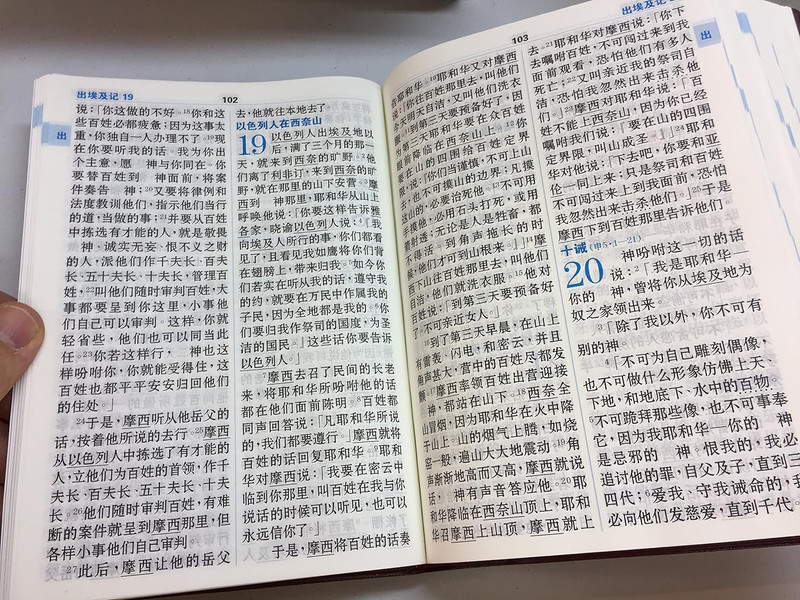 出埃及记 19
102
出
说:「你这做的不好。18你和这
些百姓必都疲惫;因为这事太
重,你独自一人办理不了。19现
在你要听我的话。我为你出
个主意,愿 神与你同在。你
要替百姓到 神面前,将案
件奏告 神;20又要将律例和
法度教训他们,指示他们当行
的道,当做的事;21并要从百姓
中拣选有才能的人,就是敬畏
神、诚实无妄、恨不义之财
的人,派他们作千夫长、百夫
长、五十夫长、十夫长,管理百
姓,22叫他们随时审判百姓,大
事都要呈到你这里,小事他
们自己可以审判。这样,你就
轻省些,他们也可以同当此
任。23你若这样行, 神也这
样吩咐你,你就能受得住,这
百姓也都平平安安归回他们
的住处。」
24于是,摩西听从他岳父的
话,按着他所说的去行。25摩西
从以色列人中拣选了有才能的
人,立他们为百姓的首领,作千
夫长、百夫长、五十夫长、十夫
长。26他们随时审判百姓,有难
断的案件就呈到摩西那里,但
各样小事他们自己审判。
27此后,摩西让他的岳父
去,他就往本地去了。
以色列人在西奈山
19 以色列人出埃及地以
后,满了三个月的那一
天,就来到西奈的旷野。2他
们离了利非订,来到西奈的旷
野,就在那里的山下安营。3摩
西到 神那里,耶和华从山上
呼唤他说:「你要这样告诉雅
各家,晓谕以色列人说:4『我
向埃及人所行的事,你们都看
见了,且看见我如鹰将你们背
在翅膀上,带来归我。5如今你
们若实在听从我的话,遵守我
的约,就要在万民中作属我的
子民,因为全地都是我的。6你
们要归我作祭司的国度,为圣
洁的国民。』这些话你要告诉
以色列人。」
7摩西去召了民间的长老
来,将耶和华所吩咐他的话
都在他们面前陈明。8百姓都
同声回答说:「凡耶和华所说
的,我们都要遵行。」摩西就将
百姓的话回复耶和华。9耶和
华对摩西说:「我要在密云中
临到你那里,叫百姓在我与你
说话的时候可以听见,也可以
永远信你了。」
于是,摩西将百姓的话奏
103
告耶和华。10耶和华又对摩西
说:「你往百姓那里去,叫他们
今天明天自洁,又叫他们洗衣
服。11到第三天要预备好了,因
为第三天耶和华要在众百姓
眼前降临在西奈山上。12你你
要在山的四围给百姓定界
限,说:『你们当谨慎,不可上山
去,也不可摸山的边界;凡摸
这山的,必要治死他。13不可用
手摸他,必用石头打死,或用
箭射透;无论是人是牲畜,都
不得活。到角声拖长的时
候,他们才可到山根来。』」14摩
西下山往百姓那里去,叫他们
自洁,他们就洗衣服。15他对
百姓说:「到第三天要预备好
了。不可亲近女人。」
16到了第三天早晨,在山上
有雷轰、闪电,和密云,并且
角声甚大,营中的百姓尽都发
颤。17摩西率领百姓出营迎接
神,都站在山下。18西奈全
山冒烟,因为耶和华在火中降
于山上。山的烟气上腾,如烧
窑一般,遍山大大地震动。19角
声渐渐地高而又高,摩西就说
话, 神有声音答应他。20耶
和华降临在西奈山顶上,耶和
华召摩西上山顶,摩西就上
出埃及记
出
去。21耶和华对摩西说:「你下
去嘱咐百姓,不可闯过来到我
面前观看,恐怕他们有多人
死亡;22又叫亲近我的祭司自
洁,恐怕我忽然出来击杀他
们。」23摩西对耶和华说:「百
姓不能上西奈山,因为你已经
嘱咐我们说:『要在山的四围
定界限,叫山成圣。』」24耶和
华对他说:「下去吧,你要和亚
伦一同上来;只是祭司和百姓
不可闯过来上到我面前,恐怕
我忽然出来击杀他们。」25于是
摩西下到百姓那里告诉他们。
十诫(申5·1—21)
20 神吩咐这一切的话
说:2「我是耶和华—
你的 神,曾将你从埃及地为
奴之家领出来。
3「除了我以外,你不可有
别的神。
4「不可为自己雕刻偶像,
也不可做什么形象仿佛上天、
下地,和地底下、水中的百物。
5不可跪拜那些像,也不可事奉
它,因为我耶和华—你的 神
是忌邪的 神。恨我的,我必
追讨他的罪,自父及子,直到三
四代;6爱我、守我诫命的,我
必向他们发慈爱,直到千代。